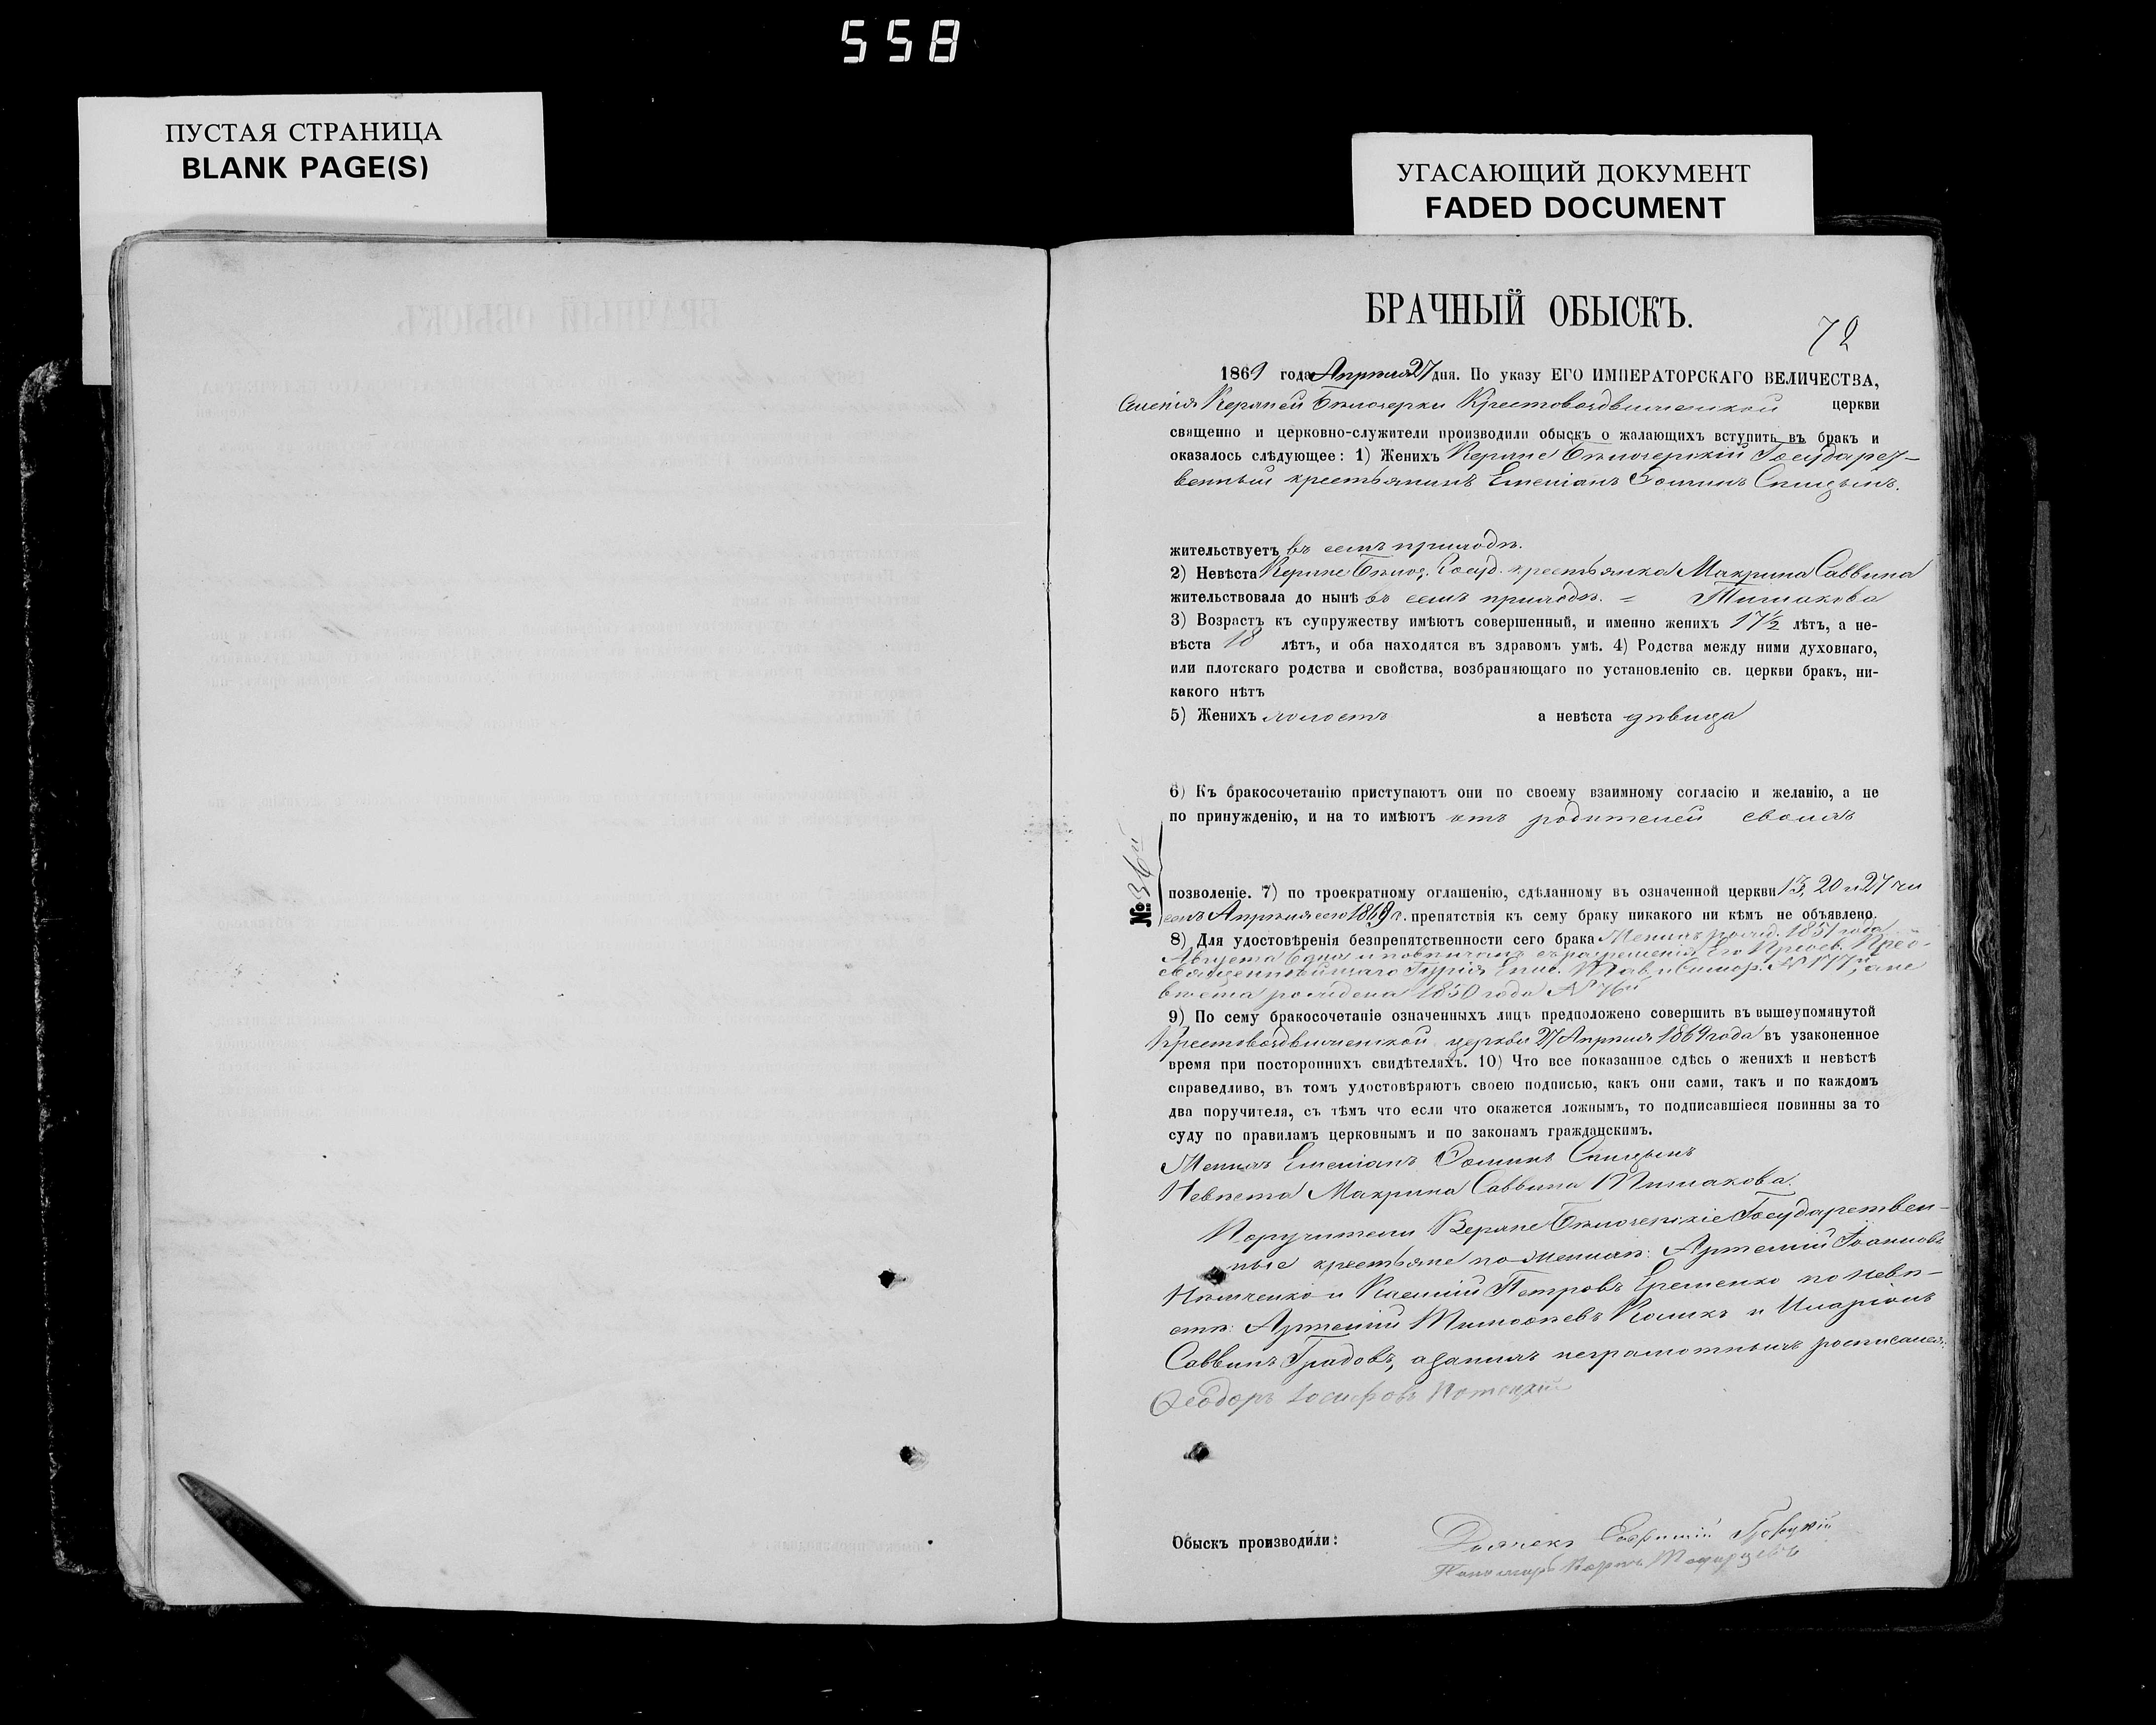 558
ПУСТАЯ СТРАНИЦА
BLANK PAGE(S)
УГАСАЮЩИЙ ДОКУМЕНТ
FADED DOCUMENT
БРАЧНЫЙ ОБЫСКЪ.
72
1869 года Апрѣля 27 дня. По указу ЕГО ИМПЕРАТОРСКАГО ВЕЛИЧЕСТВА,
Селенія Верхней Бѣлозерки Крестовоздвиженской церкви
священно и церковно-служители производили обыскъ о жалающихъ вступить въ бракъ и
оказалось слѣдующее: 1) Женихъ Верхне Бѣлозерскій Государст-
венный крестьянинъ Емеліанъ Ѳоминъ Спицынъ.
жительствуетъ въ семъ приходѣ.
2) Невѣста Верхне Бѣлоз. Госуд. крестьянка Макрина Саввина
жительствовала до нынѣ въ семъ приходѣ. = Тишакова
3) Возрастъ къ супружеству имѣютъ совершенный, и именно женихъ 17½ лѣтъ, а не-
вѣста 18 лѣтъ, и оба находятся въ здравомъ умѣ. 4) Родства между ними духовнаго,
или плотскаго родства и свойства, возбраняющаго по установленію св. церкви бракъ, ни-
какого нѣтъ
5) Женихъ холостъ а невѣста дѣвица
6) Къ бракосочетанію приступаютъ они по своему взаимному согласію и желанію, а не
по принужденію, и на то имѣютъ отъ родителей своихъ
№ 36й
позволеніе. 7) по троекратному оглашенію, сдѣланному въ означенной церкви 13, 20 и 27 чи
селъ Апрѣля сего 1869 г. препятствія къ сему браку никакого ни кѣмъ не объявлено.
8) Для удостовѣренія безпрепятственности сего брака Женихъ рожд. 1851 года
Августа 6 дня и повѣнчанъ съ разрешенія Его Преосв. Прео-
священнѣйшаго Гурія Епис. Тав. и Симфер. № 177й, а не
вѣста рождена 1850 года № 76й
9) По сему бракосочетаніе означенныхъ лицъ предположено совершить въ вышеупомянутой
Крестовоздвиженской церкви 27 Апрѣля 1869 года въ узаконенное
время при постороннихъ свидѣтеляхъ. 10) Что все показанное сдѣсь о женихѣ и невѣстѣ
справедливо, въ томъ удостовѣряютъ своею подписью, какъ они сами, такъ и по каждомъ
два поручителя, съ тѣмъ что если что окажется ложнымъ, то подписавшіеся повинны за то
суду по правиламъ церковнымъ и по законамъ гражданскимъ.
Женихъ Емеліанъ Ѳоминъ Спицынъ
Невѣста Макрина Саввина Тишакова.
Поручители Верхне Бѣлозерскіе Государствен-
ные крестьяне по женихѣ: Артемій Іоанновъ
Нѣмченко и Василій Петровъ Еременко по невѣ-
стѣ: Артемій Тимоѳеевъ Коликъ и Иларіонъ
Саввинъ Градовъ, а за нихъ неграмотныхъ росписался:
Ѳеодоръ Іосифовъ
Обыскъ производили:
Дьячекъ
Пономарь